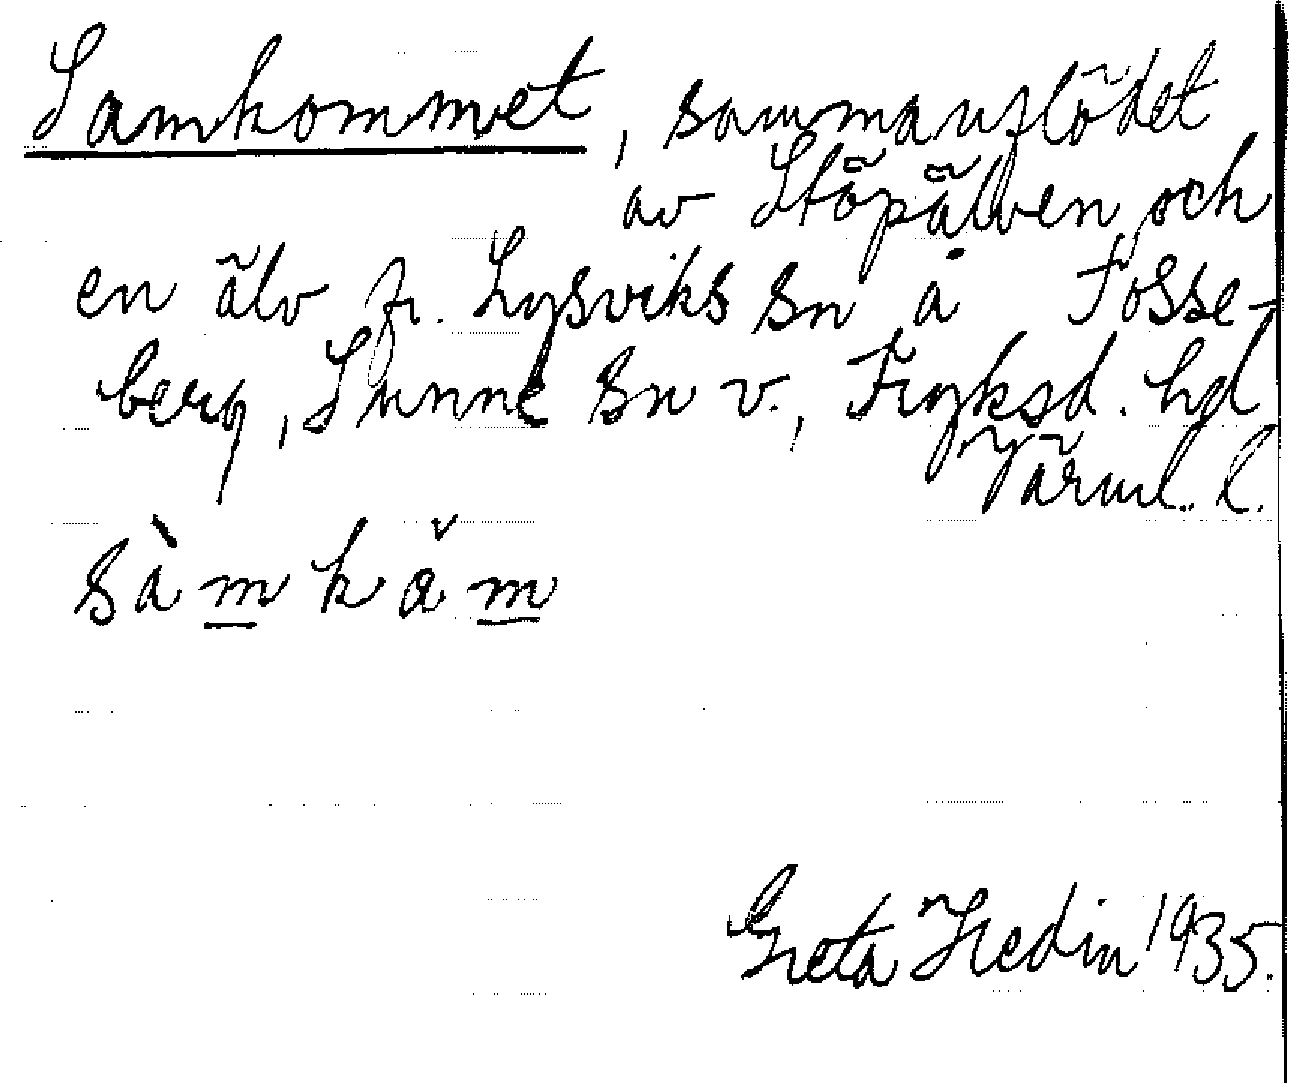 Samkommet, sammanflödet
av Stöpälven och
en älv fr. Lysviks sn å Fosse-
berg, Sunne sn v., Fryksd. hd
Värml. l.
sàmkǎm
Greta Hedin 1935.